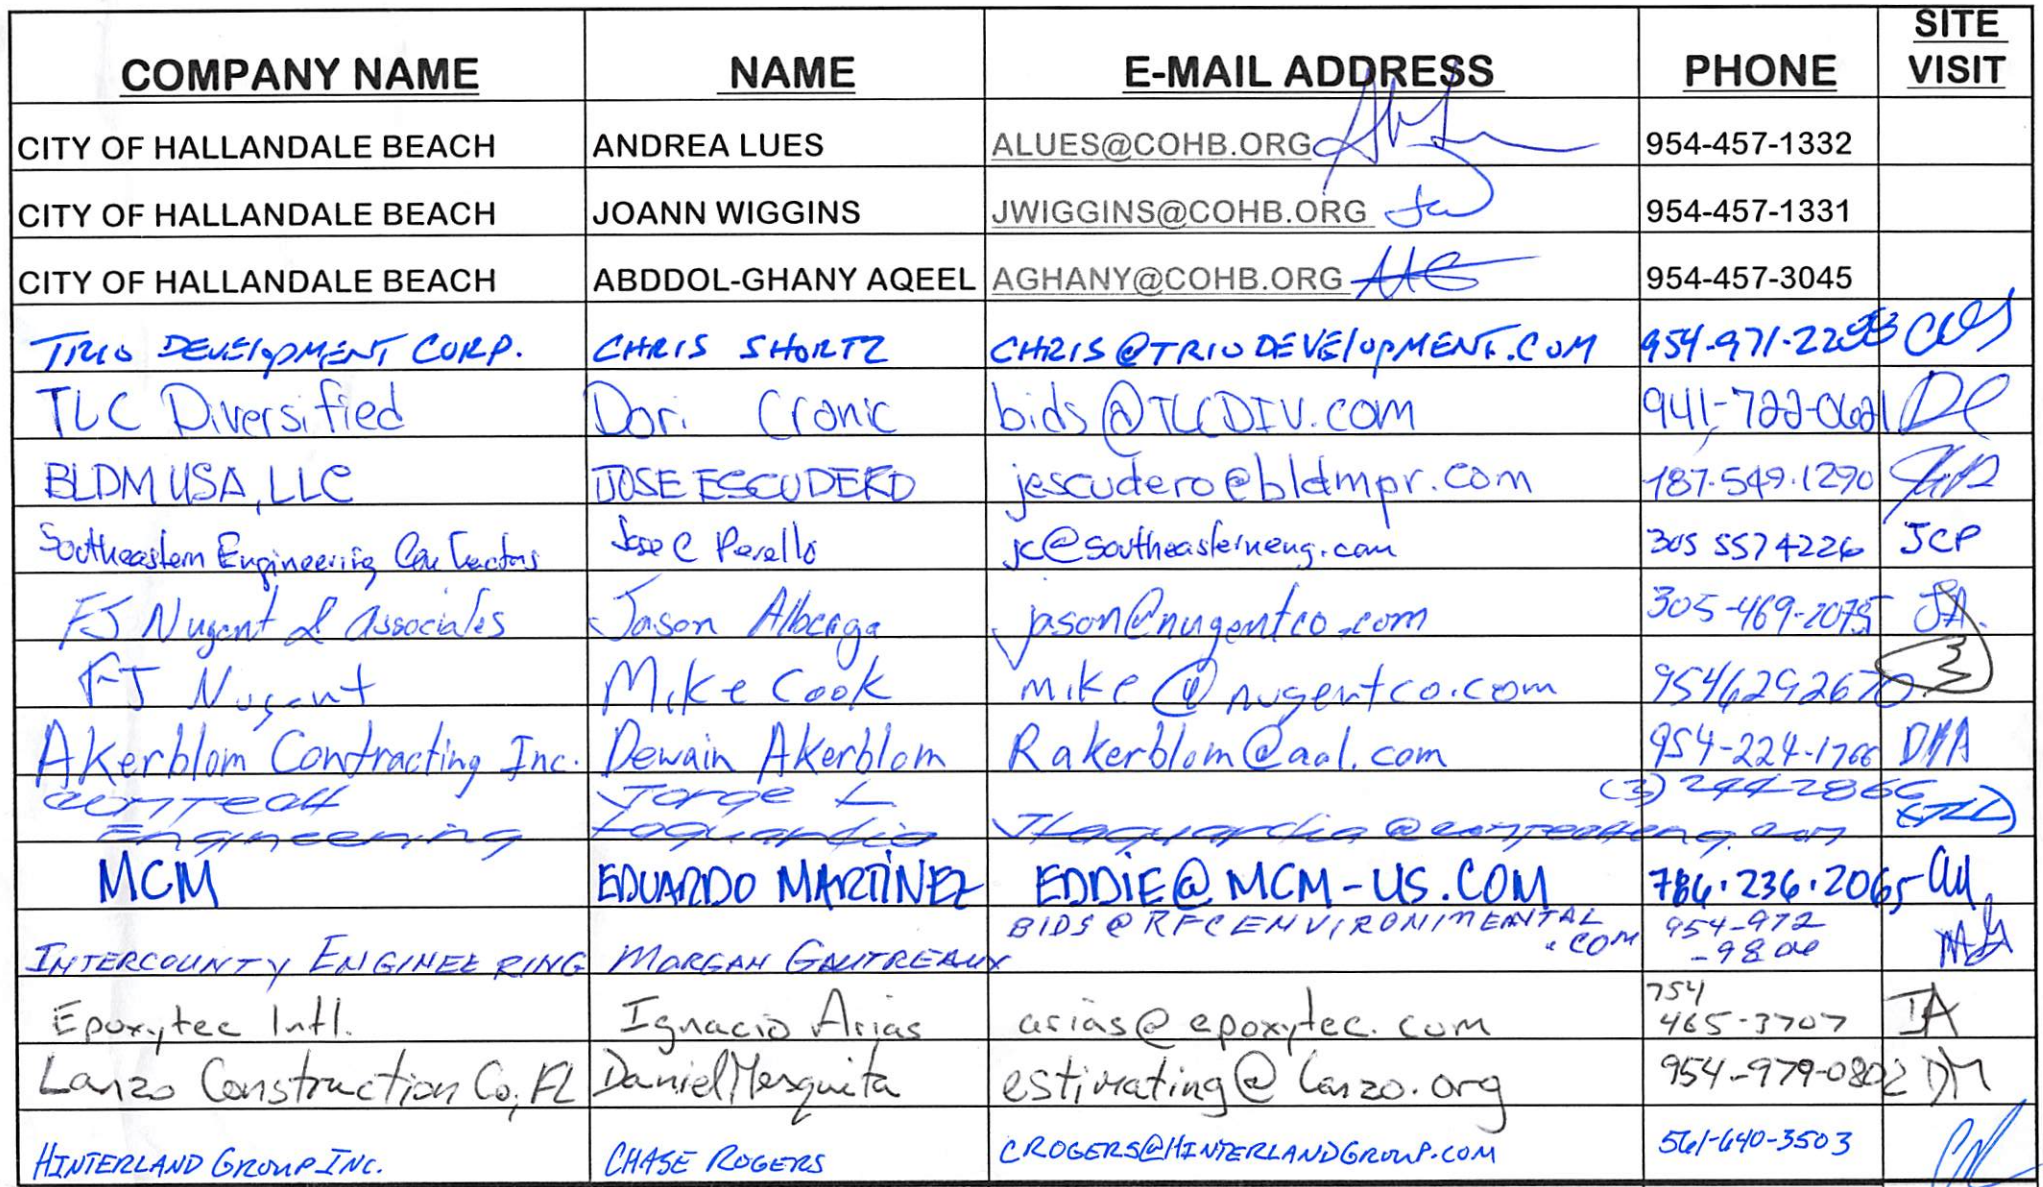 COMPANY NAME NAME E-MAIL ADDRESS PHONE SITE VISIT
CITY OF HALLANDALE BEACH ANDREA LUES ALUES@COHB.ORG 954-457-1332
CITY OF HALLANDALE BEACH JOANN WIGGINS JWIGGINS@COHB.ORG JW 954-457-1331
CITY OF HALLANDALE BEACH ABDDOL-GHANY AQEEL AGHANY@COHB.ORG 954-457-3045
TRIO DEVElOpMENT CORP. CHRIS SHORTZ CHRIS@TRIODEVElOpMENT.COM
TLC Diversified Dori Cronic bids@TLCDIV.com 941-722-0621 DC
BLDM USA, LLC JOSE ESCUDERO jescudero@bldmpr.com 787.549.1290
Southeastern Engineering Contractors Jose C Perello jc@southeasterneng.com 305 5574226 JCP
FJ Nugent & Associates Jason jason@nugentco.com 305-469-2075 JA.
FJ Nugent Mike Cook mike@nugentco.com 9546292670
Akerblom Contracting Inc. Dewain Akerblom Rakerblom@aol.com 954-224-1766 DMA
Jorge L (3) 2442866
Engineering Laguardia
MCM EDUARDO MARTÍNEZ EDDIE@MCM-US.COM 786.236.2065
INTERCOUNTY ENGINEERING MORGAN GAUTREAUX BIDS@RFCENVIRONMENTAL.COM 954-972-9800 MG
Epoxytec Intl. Ignacio Arias arias@epoxytec.com 754 465-3707 IA
Lanzo Construction Co, FL Daniel Mesquita estimating@lanzo.org 954-979-0802 DM
HINTERLAND GROUP INC. CHASE ROGERS CROGERS@HINTERLANDGROUP.COM 561-640-3503 CR